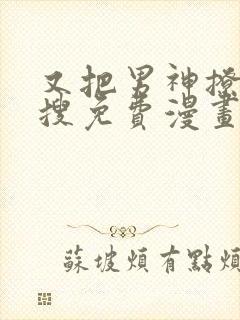 又把男神撩
搜免費漫畫
蘇坡煩有點煩